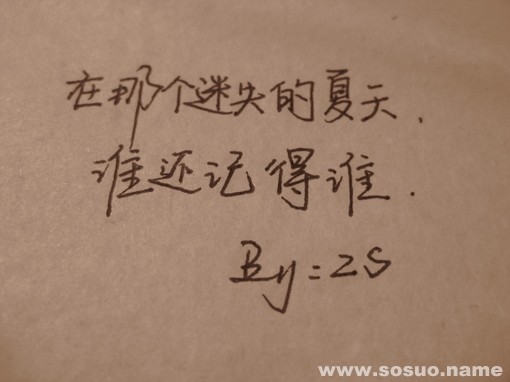 在那个迷失的夏天.
谁还记得谁.
By=ZS
www.sosuo.name